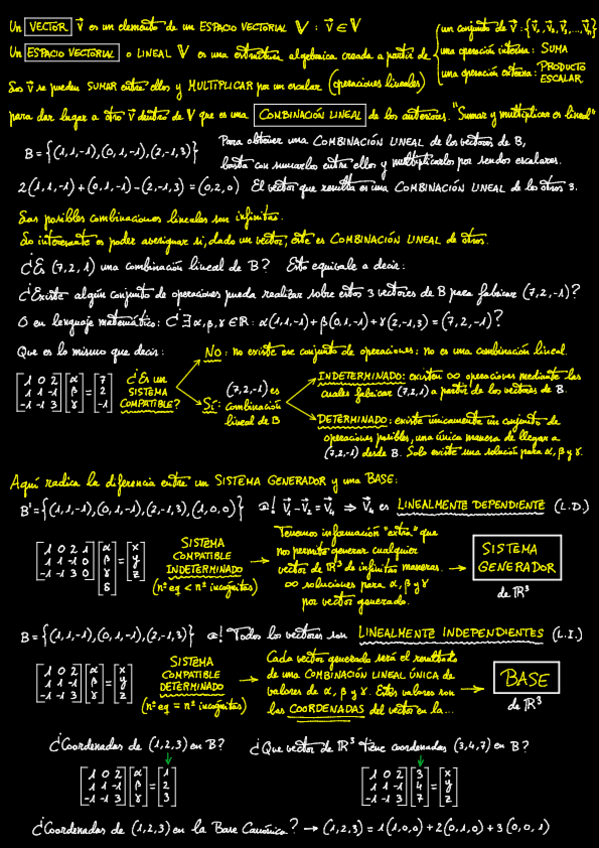 Un VECTOR v⃗ es un elemento de un ESPACIO VECTORIAL V : v⃗ ∈ V
Un ESPACIO VECTORIAL o LINEAL V es una estructura algebraica creada a partir de
un conjunto de v⃗: {v⃗₁, v⃗₂, v⃗₃, ..., v⃗ₙ}
una operación interna: SUMA
una operación externa: PRODUCTO ESCALAR
Los v⃗ se pueden SUMAR entre ellos y MULTIPLICAR por un escalar (operaciones lineales)
para dar lugar a otro v⃗ dentro de V que es una COMBINACIÓN LINEAL de los anteriores. "Sumar y multiplicar es lineal"
B = {(1,1,-1),(0,1,-1),(2,-1,3)}
Para obtener una COMBINACIÓN LINEAL de los vectores de B,
basta con sumarlos entre ellos y multiplicarlos por sendos escalares.
2(1,1,-1)+(0,1,-1)-(2,-1,3) = (0,2,0) El vector que resulta es una COMBINACIÓN LINEAL de los otros 3.
Las posibles combinaciones lineales son infinitas.
Lo interesante es poder averiguar si, dado un vector, este es COMBINACIÓN LINEAL de otros.
¿Es (7,2,1) una combinación lineal de B? Esto equivale a decir:
¿Existe algún conjunto de operaciones pueda realizar sobre estos 3 vectores de B para fabricar (7,2,-1)?
O en lenguaje matemático: ¿∃ α, β, γ ∈ R: α(1,1,-1)+β(0,1,-1)+γ(2,-1,3) = (7,2,-1)?
Que es lo mismo que decir:
NO: no existe ese conjunto de operaciones: no es una combinación lineal.
[1 0 2] [α] [7]
[1 1 -1] [β] = [2]
[-1 -1 3] [γ] [-1]
¿Es un
SISTEMA
COMPATIBLE?
Sí:
(7,2,-1) es
combinación
lineal de B
INDETERMINADO: existen ∞ operaciones mediante las
cuales fabricar (7,2,1) a partir de los vectores de B.
DETERMINADO: existe únicamente un conjunto de
operaciones posibles, una única manera de llegar a
(7,2,-1) desde B. Solo existe una solución para α, β y γ.
Aquí radica la diferencia entre un SISTEMA GENERADOR y una BASE:
B' = {(1,1,-1),(0,1,-1),(2,-1,3),(1,0,0)} ! v⃗₁-v⃗₂=v⃗₄ ⇒ v⃗₄ es LINEALMENTE DEPENDIENTE (L.D.)
[1 0 2 1] [α] [x]
[1 1 -1 0] [β] = [y]
[-1 -1 3 0] [γ] [z]
[δ]
SISTEMA
COMPATIBLE
INDETERMINADO
(nº eq < nº incógnitas)
Tenemos información "extra" que
nos permite generar cualquier
vector de R³ de infinitas maneras.
∞ soluciones para α, β y γ
por vector generado.
SISTEMA
GENERADOR
de R³
B = {(1,1,-1),(0,1,-1),(2,-1,3)} ! Todos los vectores son LINEALMENTE INDEPENDIENTES (L.I.)
[1 0 2] [α] [x]
[1 1 -1] [β] = [y]
[-1 -1 3] [γ] [z]
SISTEMA
COMPATIBLE
DETERMINADO
(nº eq = nº incógnitas)
Cada vector generado será el resultado
de una COMBINACIÓN LINEAL ÚNICA de
valores de α, β y γ. Estos valores son
las COORDENADAS del vector en la...
BASE
de R³
¿Coordenadas de (1,2,3) en B?
[1 0 2] [α] [1]
[1 1 -1] [β] = [2]
[-1 -1 3] [γ] [3]
¿Que vector de R³ tiene coordenadas (3,4,7) en B?
[1 0 2] [3] [x]
[1 1 -1] [4] = [y]
[-1 -1 3] [7] [z]
¿Coordenadas de (1,2,3) en la Base Canónica? → (1,2,3) = 1(1,0,0)+2(0,1,0)+3(0,0,1)